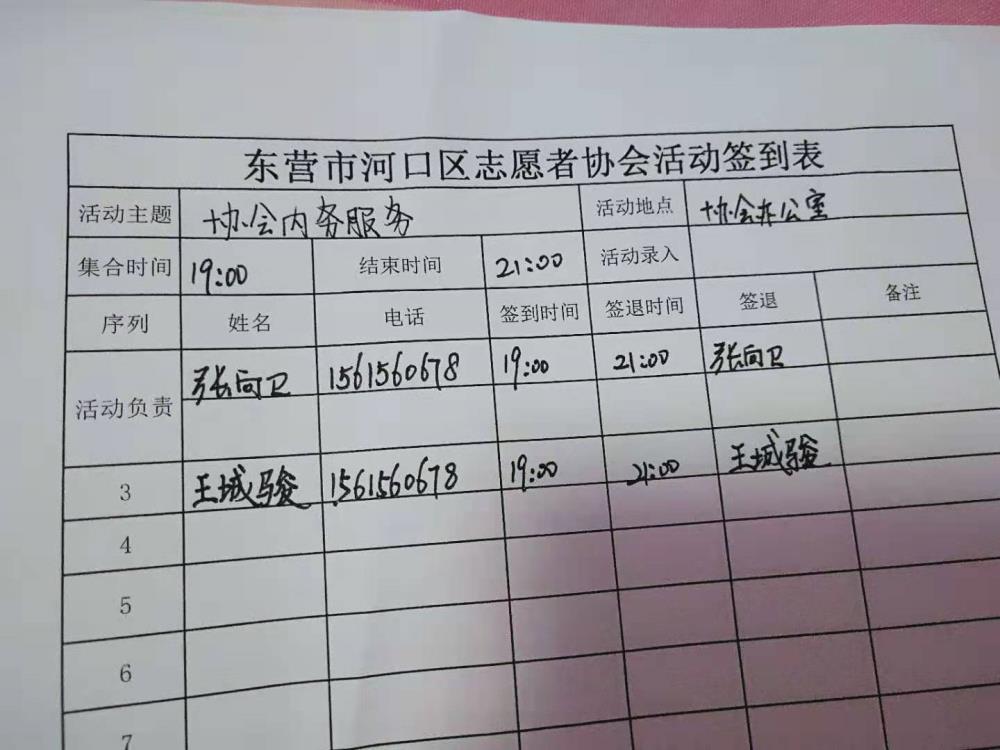 东营市河口区志愿者协会活动签到表
活动主题 协会内务服务 活动地点 协会办公室
集合时间 19:00 结束时间 21:00 活动录入
序列 姓名 电话 签到时间 签退时间 签退 备注
活动负责 张向卫 1561560678 19:00 21:00 张向卫
3 王城骏 1561560678 19:00 21:00 王城骏
4
5
6
7